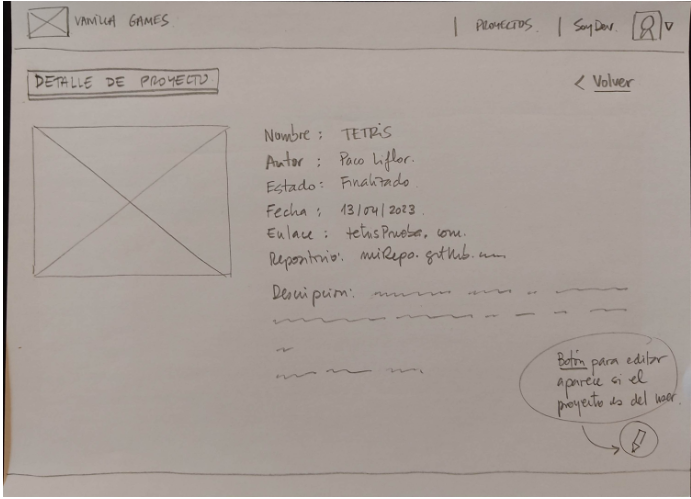 VANILLA GAMES
| PROYECTOS. | Soy Dev.
DETALLE DE PROYECTO
< Volver
Nombre : TETRIS
Autor : Paco Liflor.
Estado : Finalizado
Fecha : 13/04/2023.
Enlace : tetrisPrueba.com.
Repositorio: miRepo.github.
Descripcion:
Botón para editar
aparece si el
proyecto es del user.